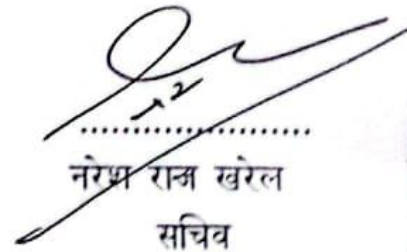 ....................
नरेश राज खरेल
सचिव